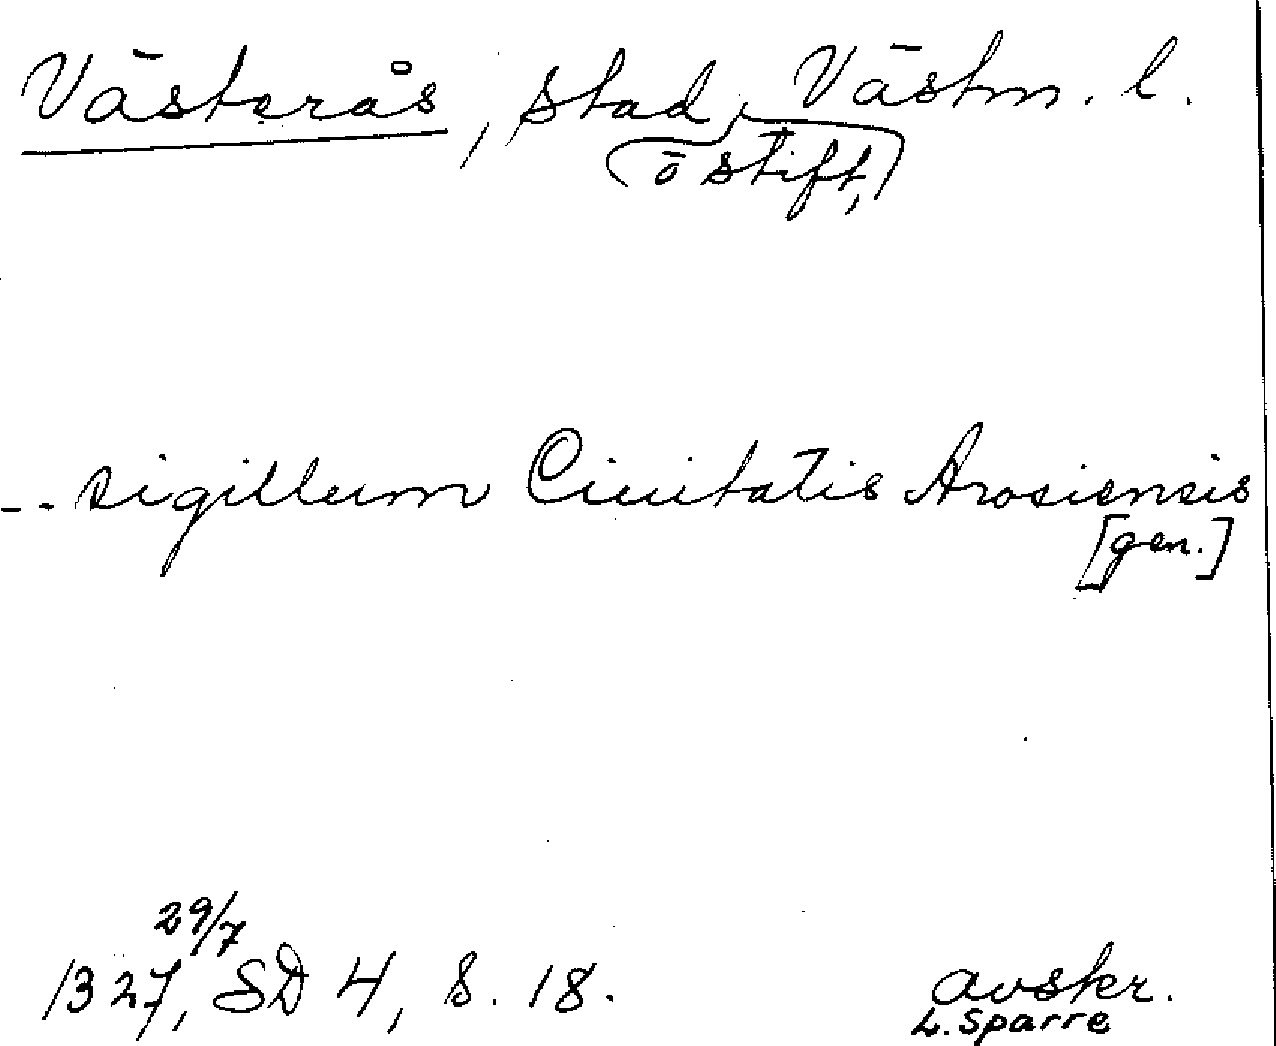 Västerås, stad, Västm. l.
ö stift,
-- sigillum Ciuitatis Arosiensis
[gen.]
29/7
1327, SD 4, s. 18.
avskr.
L. Sparre